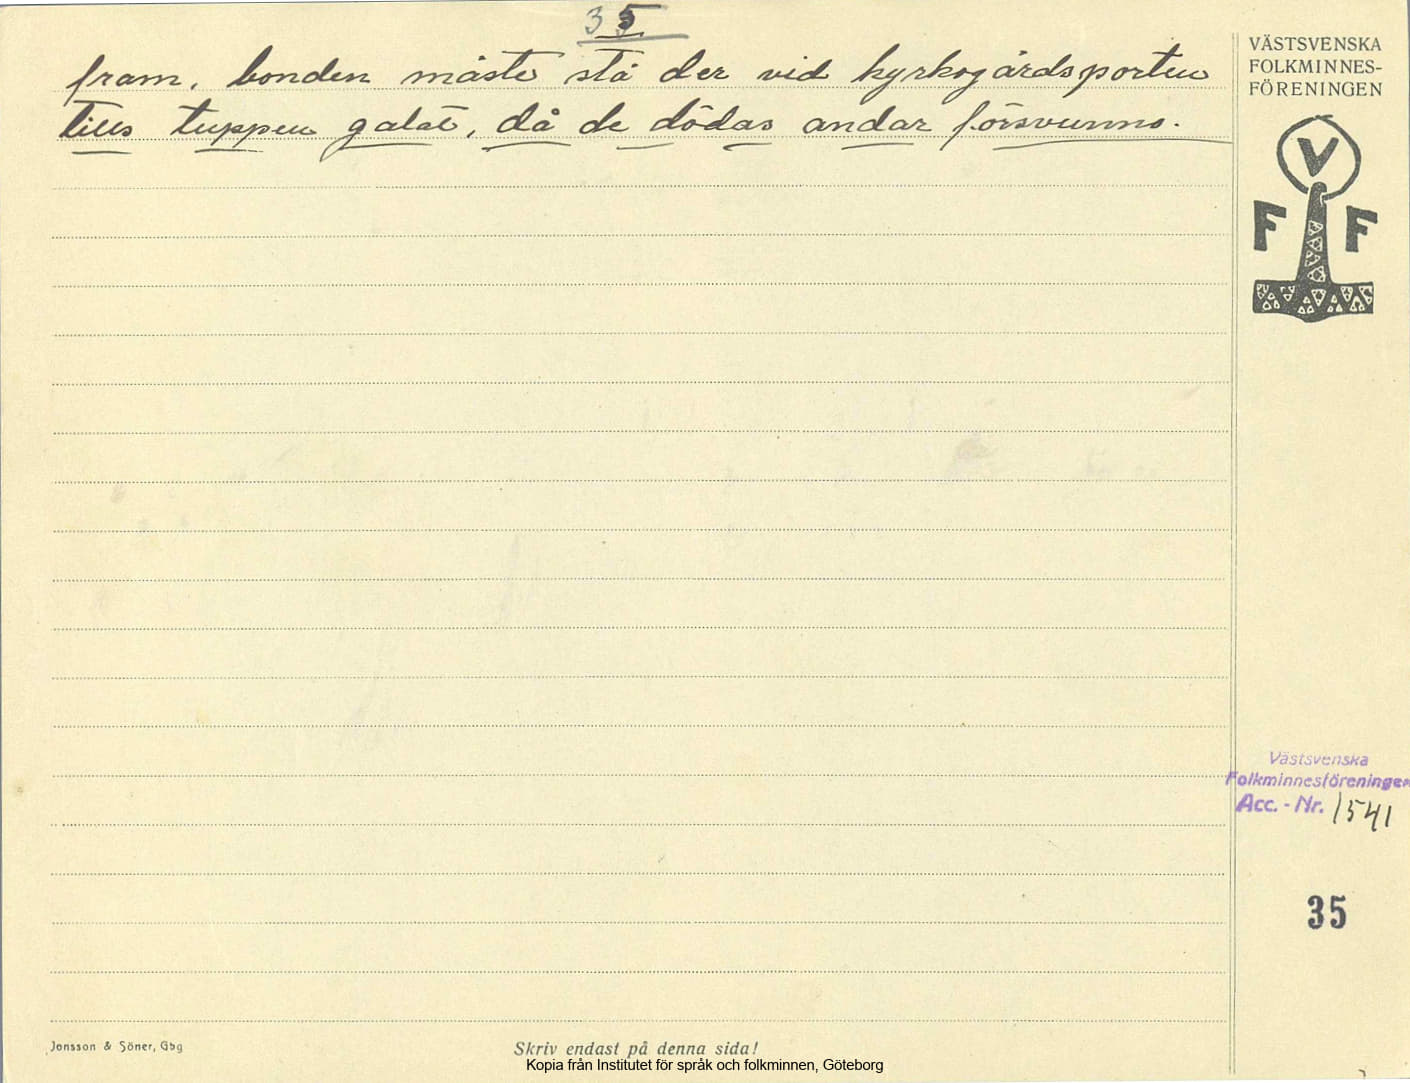 35
fram, bonden måste stå der vid kyrkogårdsporten
tills tuppen galat, då de dödas andar försvunno.
VÄSTSVENSKA
FOLKMINNES-
FÖRENINGEN
V
F F
Västsvenska
Folkminnesföreningen
Acc. - Nr. 1541
35
Jonsson & Söner, Gbg
Skriv endast på denna sida!
Kopia från Institutet för språk och folkminnen, Göteborg